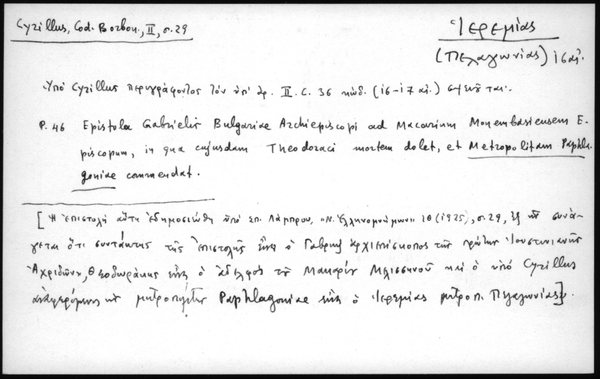 Cyrillus, Cod. Borbon., II, σ. 29
Ἱερεμίας
(Πελαγωνίας) 16 αἰ.
Ὑπό Cyrillus περιγράφοντος τὸν ὑπ' ἀρ. II. C. 36 κώδ. (16-17 αἰ.) σημειοῦται.
P. 46 Epistola Gabrielis Bulgariae Archiepiscopi ad Macarium Monembasiensem E-
piscopum, in qua cujusdam Theodoraci mortem dolet, et Metropolitam Paphla-
goniae commendat.
[Ἡ ἐπιστολή αὕτη ἐδημοσιεύθη ὑπό Σπ. Λάμπρου, «Ν. Ἑλληνομνήμων» 19 (1925), σ. 29, ἐξ οὗ συνά-
γεται ὅτι συντάκτης τῆς ἐπιστολῆς εἶναι ὁ Γαβριήλ ἀρχιεπίσκοπος τῆς πρώτης Ἰουστινιανῆς
Ἀχριδῶν, Θεοδωράκης εἶναι ὁ ἀδελφός τοῦ Μακαρίου Μελισσηνοῦ καί ὁ ὑπό Cyrillus
ἀναφερόμενος μητροπολίτης Paphlagoniae εἶναι ὁ Ἱερεμίας μητροπ. Πελαγωνίας].